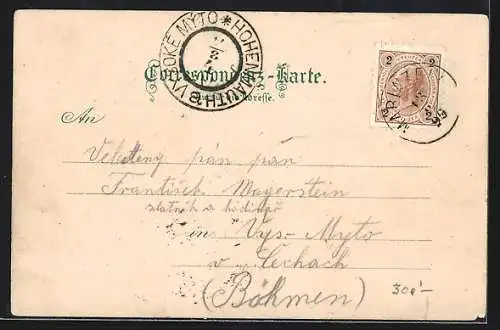 VYSOKÉ MÝTO * HOHENMAUTH
Correspondenz-Karte.
2 2
MARIAZELL
99
An
Velectěný pán pan
František Mayerstein
zlatník a hodinář
in Vys-Myto
v Čechach
(Böhmen)
300'-